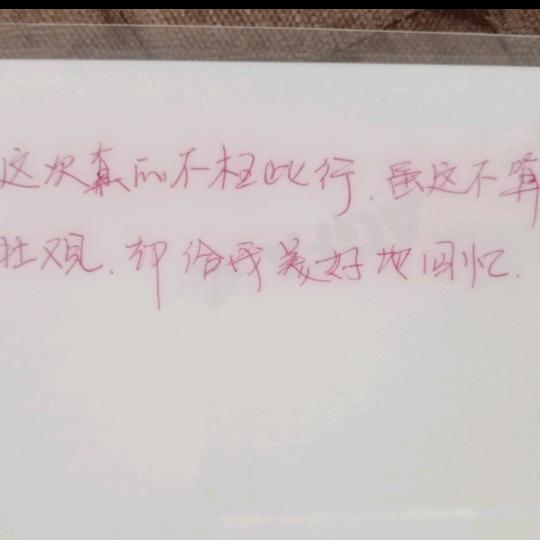 这次真的不枉此行.虽这不算
壮观.却给我美好地回忆.